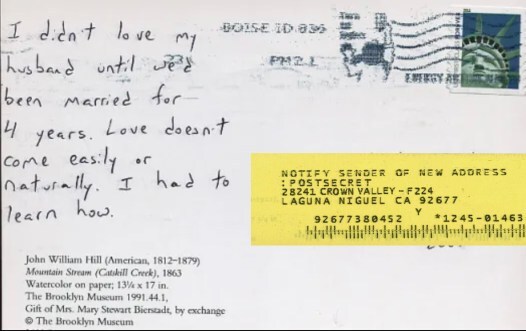 I didn't love my
husband until we'd
been married for
4 years. Love doesn't
come easily or
naturally. I had to
learn how.
BOISE ID 836
PM 2 L
NOTIFY SENDER OF NEW ADDRESS
:POSTSECRET
28241 CROWN VALLEY-F224
LAGUNA NIGUEL CA 92677
Y
92677380452 *1245-01463
John William Hill (American, 1812–1879)
Mountain Stream (Catskill Creek), 1863
Watercolor on paper; 13¼ x 17 in.
The Brooklyn Museum 1991.44.1,
Gift of Mrs. Mary Stewart Bierstadt, by exchange
© The Brooklyn Museum